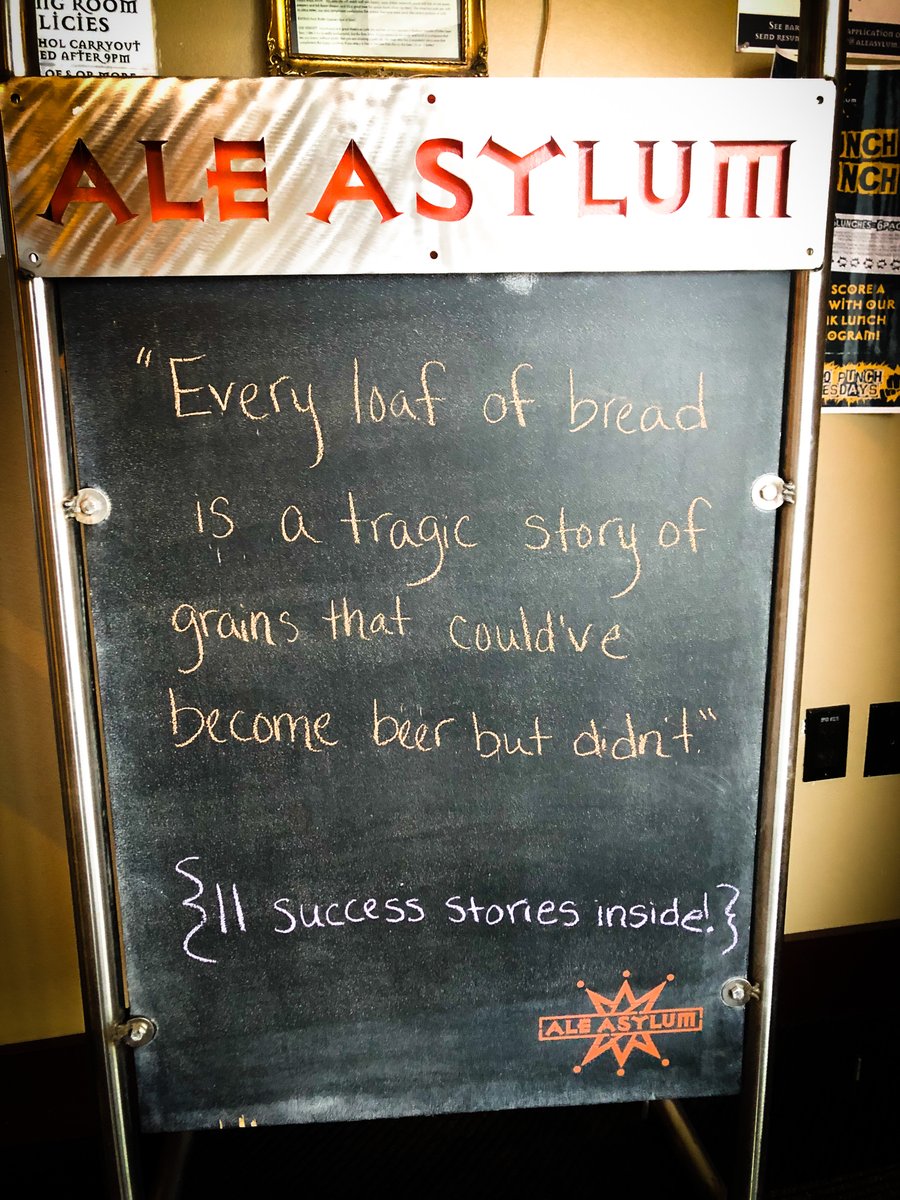 NG ROOM
LICIES
HOL CARRYOUT
ED AFTER 9PM
OF 8 OR MORE
SEE BAR
SEND RESU
APPLICATION O
@ALEASYLUM.
ALE ASYLUM
NCH
NCH
LUNCHES=6PAC
SCORE A
WITH OUR
NK LUNCH
OGRAM!
O PUNCH
ESDAYS
"Every loaf of bread
is a tragic story of
grains that could've
become beer but didn't."
{11 success stories inside!}
ALE ASYLUM